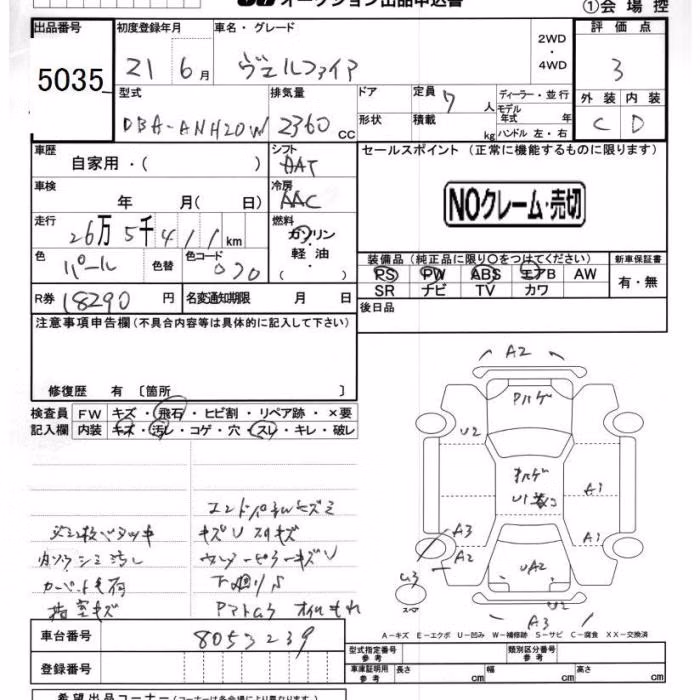 オークション出品申込書
①会場控
出品番号 初度登録年月 車名・グレード 2WD ・ 4WD 評価点
5035 21 6月 ヴェルファイア 3
型式 排気量 ドア 定員 7人 ディーラー・並行 外装 内装
DBA-ANH20W 2360cc 形状 積載 kg モデル年式 年 ハンドル 左・右 C D
車歴 シフト セールスポイント (正常に機能するものに限ります)
自家用・( ) AT
車検 冷房 NOクレーム・売切
年 月( 日) AAC
走行 燃料
26万5千411km ガソリン・軽油・( )
色 パール 色替 色コード 070
装備品 (純正品に限り○をつけてください) 新車保証書
PS PW ABS エアB AW 有・無
SR ナビ TV カワ
R券 18290円 名変通知期限 月 日 後日品
注意事項申告欄 (不具合内容等は具体的に記入して下さい)
修復歴 有 〔箇所 〕
検査員 FW キズ・飛石・ヒビ割・リペア跡・×要
記入欄 内装 キズ・汚レ・コゲ・穴・スレ・キレ・破レ
A2
U2
A1
A3 A1
A2 UA2
U2
A3
内ソウシミ汚レ キズU スリキズ
下回りS
車台番号 8053239
登録番号
A-キズ E-エクボ U-凹み W-補修跡 S-サビ C-腐食 XX-交換済
型式指定番号 参考 類別区分番号 参考
車庫証明用 参考 長さ cm 幅 cm 高さ cm
希望出品コーナー (コーナーは各会場により異なります)